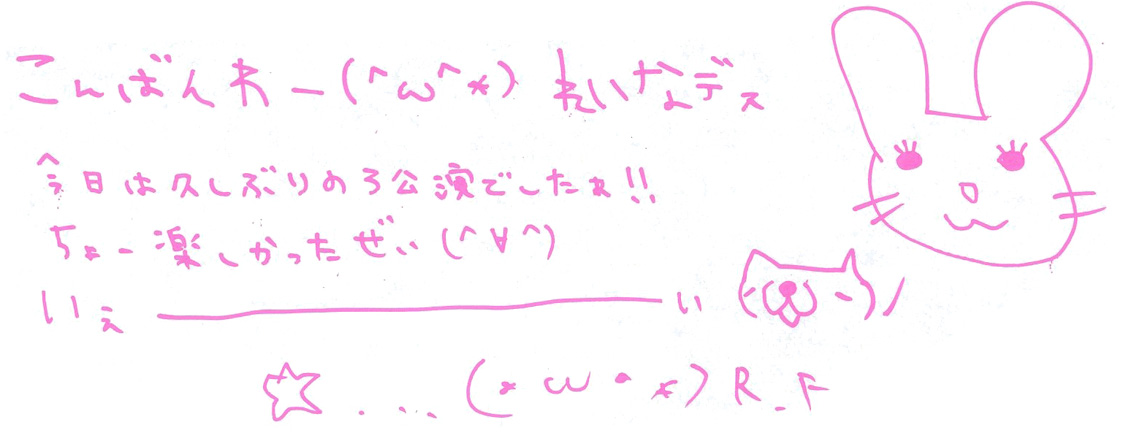 こんばんわー(^ω^*) れいなデス
今日は久しぶりの3公演でしたぁ!!
ちょー楽しかったぜぃ(^∀^)
いぇーい
☆....(*ω・*) R.F